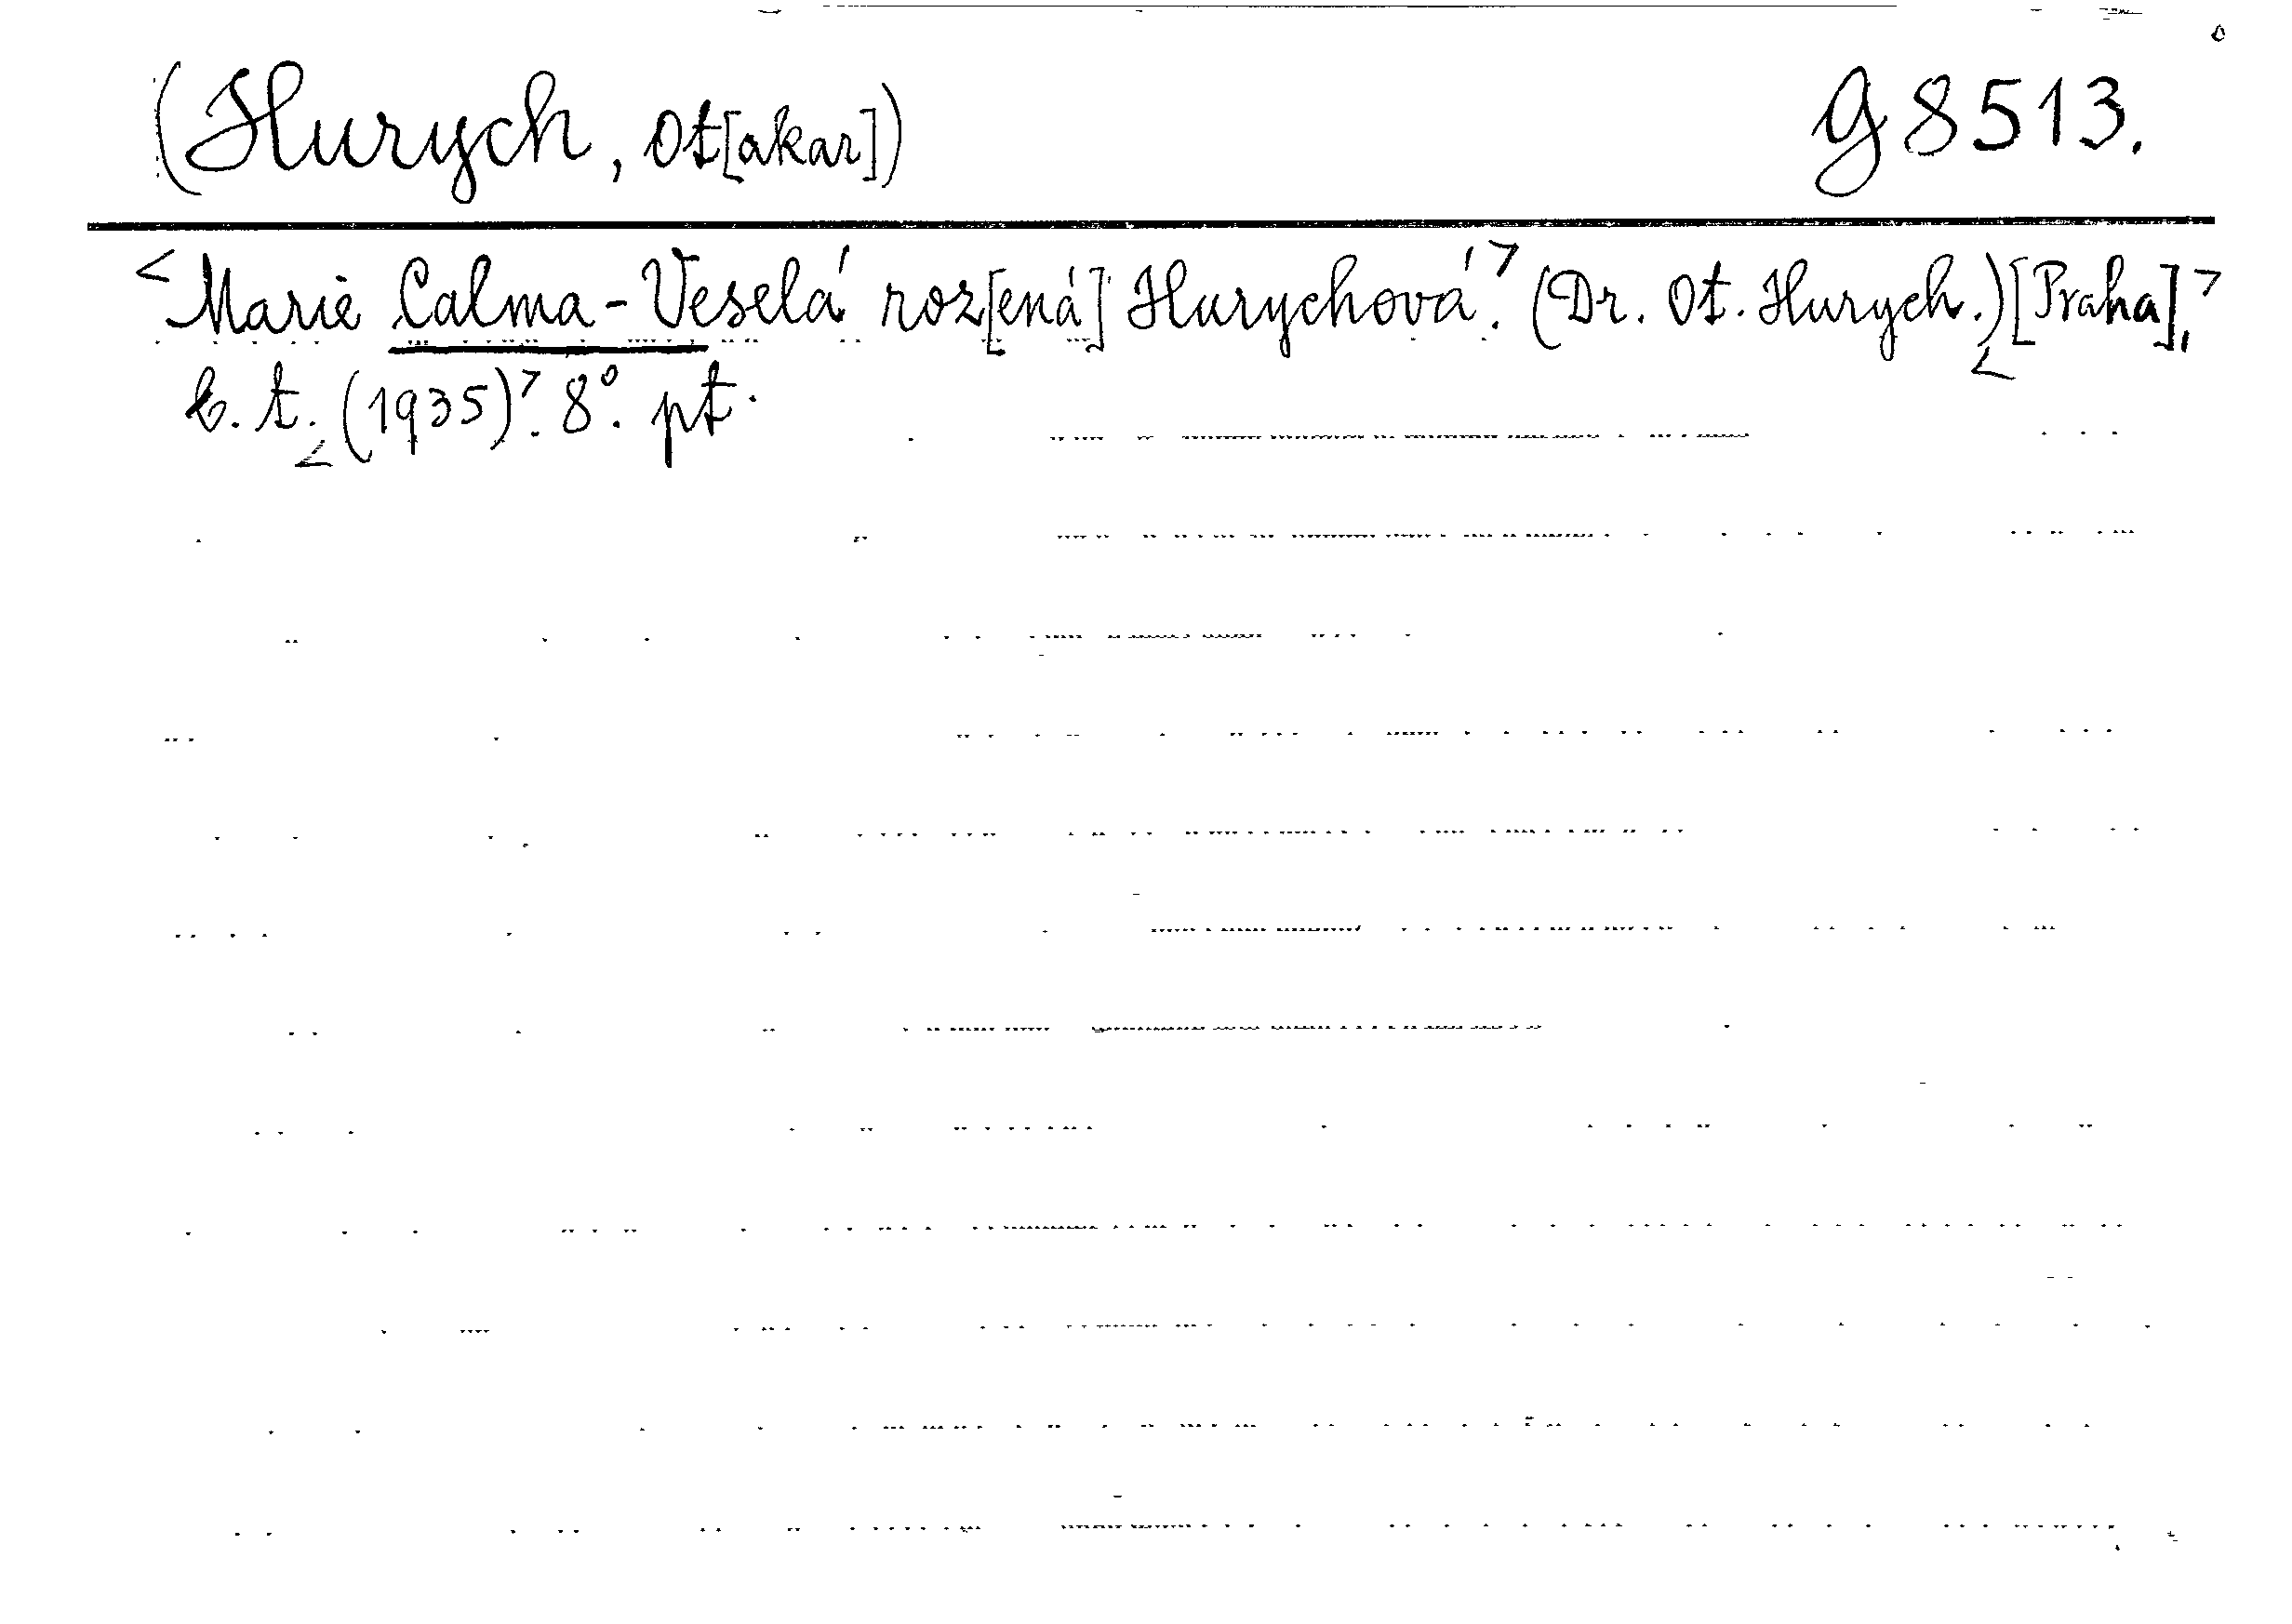 (Hurych, Ot[akar]) G 8513.
<Marie Calma-Veselá roz[ená] Hurychová.> (Dr. Ot. Hurych.) <[Praha],>
b. t. <(1935)>. 8°. pt.